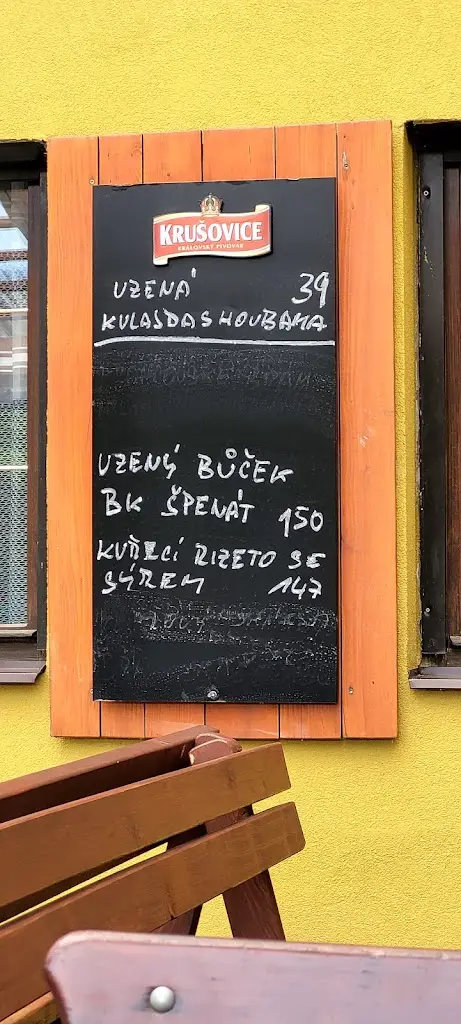 KRUŠOVICE
KRÁLOVSKÝ PIVOVAR
UZENÁ 39
KULAJDA S HOUBAMA
UZENÝ BŮČEK
BK ŠPENÁT 150
KUŘECÍ RIZETO SE
SÝREM 147